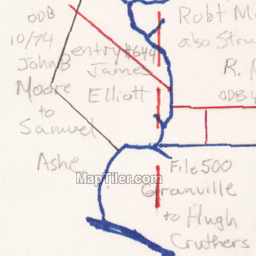 ODB
10/74
John B
Moore
to
Samuel
Ashe
entry#644
James
Elliott
Robt M
also Stru
R. M
ODB 4
File 500
Granville
to Hugh
Cruthers
MapTiler.com